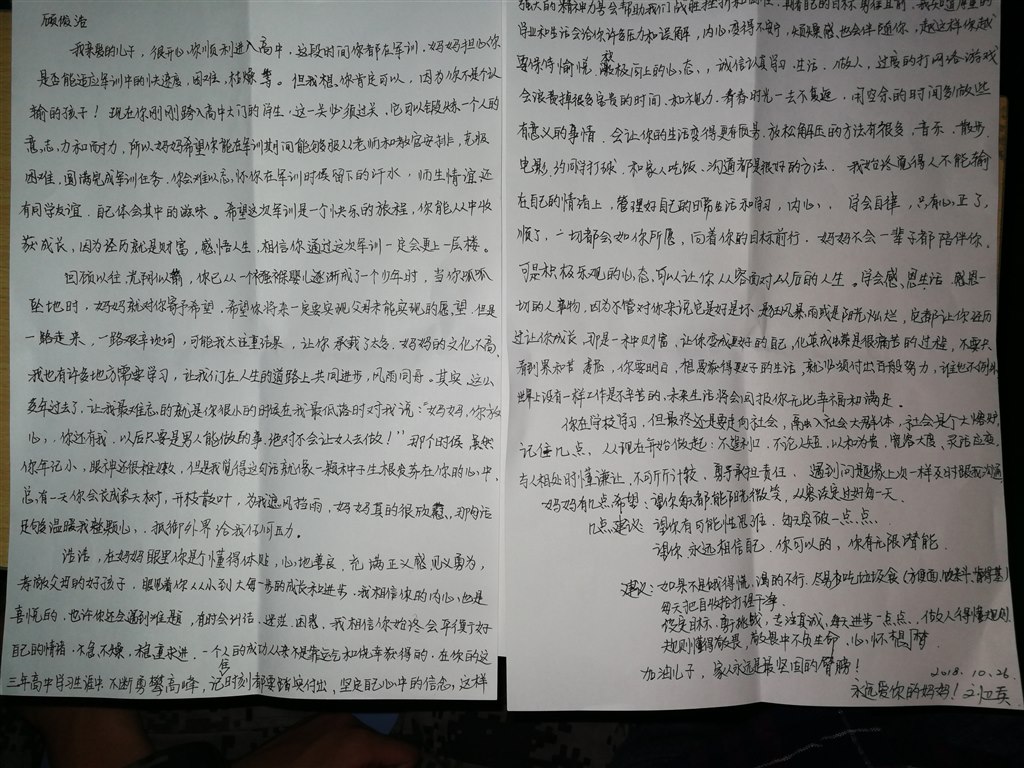 顾俊浩
我亲爱的儿子，很开心你顺利进入高中，这段时间你都在军训，妈妈担心你
是否能适应军训中的快速度，困难，枯燥等。但我想，你肯定可以，因为你不是个认
输的孩子！现在你刚刚跨入高中大门的学生，这一关必须过关，它可以锻炼一个人的
意志力和耐力，所以妈妈希望你能在军训期间能够服从老师和教官安排，克服
困难，圆满完成军训任务。你会难以忘怀你在军训时候留下的汗水，师生情谊还
有同学友谊，自己体会其中的滋味。希望这次军训是一个快乐的旅程，你能从中收
获成长，因为经历就是财富，感悟人生，相信你通过这次军训一定会更上一层楼。
回顾以往，光阴似箭，你已从一个襁褓婴儿逐渐成了一个少年时，当你呱呱
坠地时，妈妈就对你寄予希望，希望你将来一定要实现父母未能实现的愿望，但是
一路走来，一路艰辛坎坷，可能我太注重结果，让你承载了太多，妈妈的文化不高，
我也有许多地方需要学习，让我们在人生的道路上共同进步，风雨同舟。其实，这么
多年过去了，让我最难忘的就是你很小的时候在我最低落时对我说："妈妈，你放
心，你还有我，以后只要是男人能做的事，绝对不会让女人去做！"那个时候，虽然
你年记小，眼神还很稚嫩，但是我觉得这句话就像一颗种子生根发芽在你的心中，
总有一天你会长成参天大树，开枝散叶，为我遮风挡雨，妈妈真的很欣慰，那句话
足够温暖我整颗心，抵御外界给我任何压力。
浩浩，在妈妈眼里你是个懂得体贴，心地善良，充满正义感，见义勇为，
孝敬父母的好孩子，眼见着你从小到大每一步的成长和进步，我相信你的内心也是
喜悦的，也许你还会遇到难题，有时会对话，迷茫，困惑，我相信你始终会平复好
自己的情绪，不急不燥，稳重求进，一个人的成功从来不是靠运气和侥幸获得的，在你的这
三年高中学习生涯中，不断勇攀高峰，记住时刻都要踏实付出，坚定自己心中的信念，这样
强大的精神力量会帮助我们战胜挫折和困难，朝着自己的目标勇往直前，我知道厚重的
学业和生活会给你许多压力和误解，内心变得不安，烦燥感也会伴随你，越这样你越
要保持愉悦，积极向上的心态，诚信认真学习，生活，做人，过度的打网络游戏
会浪费掉很多宝贵的时间，和视力，青春时光一去不复返，闲空余的时间多做些
有意义的事情，会让你的生活变得更有质量，放松解压的方法有很多，音乐，散步，
电影，约同学打球，和家人吃饭，沟通都是很好的方法。我始终觉得人不能输
在自己的情绪上，管理好自己的日常生活和学习，内心，学会自律，只有心正了，
顺了，一切都会如你所愿，向着你的目标前行，妈妈不会一辈子都陪伴你，
可是积极乐观的心态，可以让你从容面对以后的人生。学会感恩生活，感恩一
切的人事物，因为不管对你来说它是好是坏，是狂风暴雨或是阳光灿烂，它都让你经历
过让你成长，那是一种财富，让你变成更好的自己，化茧成蝶是很痛苦的过程，不要只
看到果和苦，你要明白，想要获得更好的生活，就必须付出百般努力，谁也不例外，
世界上没有一样工作是不辛苦的，未来生活将会回报你无比幸福和满足。
你在学校学习，但最终还是要走向社会，融入社会大群体，社会是个大熔炉，
记住几点，从现在开始做起：不望利归，不论人短，以和为贵，宽容大度，灵活应变，
与人相处时懂谦让，不可斤斤计较，勇于承担责任，遇到问题像上次一样及时跟我沟通
妈妈有几点希望：望你每天都能阳光微笑，从容淡定过好每一天。
几点建议：望你有可能性思维，每天突破一点点。
望你永远相信自己，你可以的，你有无限潜能。
建议：如果不是饿得慌，渴的不行，尽量少吃垃圾食（方便面，肥料，懂得基）
每天把自己收拾打理干净。
设定目标，新挑战，专注真诚，每天进步一点点，做人得懂规则
规则懂得敬畏，敬畏中不负生命，心怀想梦
加油儿子，家永远是最坚固的臂膀！
2018.10.26.
永远爱你的妈妈！